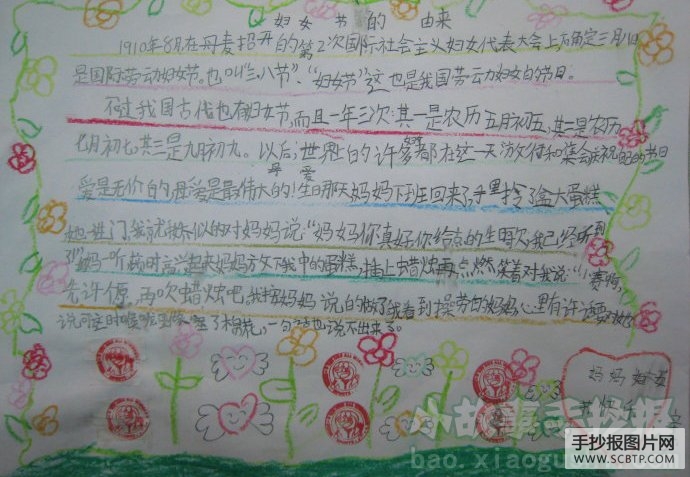 妇女节的由来
1910年8月在丹麦招开的第2次国际社会主义妇女代表大会上确定三月
是国际劳动妇女节。也叫"三八节"、"妇女节"这也是我国劳动妇女的节日。
不过我国古代也有妇女节,而且一年三次:其一是农历五月初五,其二是农历
七月初七,其三是九月初九。以后,世界的许多国家都在这一天游行和集会庆祝自己的节日
母爱
爱是无价的,母爱是最伟大的!生日那天妈妈下班回来了,手里拎了盒大蛋糕
她一进门,我就对妈妈说:"妈妈你真好,你给我的生日
妈妈一听,顿时高兴起来,妈妈放下手中的蛋糕,插上蜡烛再点燃,笑着对我说:"
先许原,再吹蜡烛吧,我按妈妈说的做了,我看到操劳的妈妈心里有许多话要对她
说,可这时喉咙里像塞了棉花,一句话也说不出来了。
妈妈
节快乐
小故事手抄报
bao.xiaogu
手抄报图片网
www.SCBTP.com